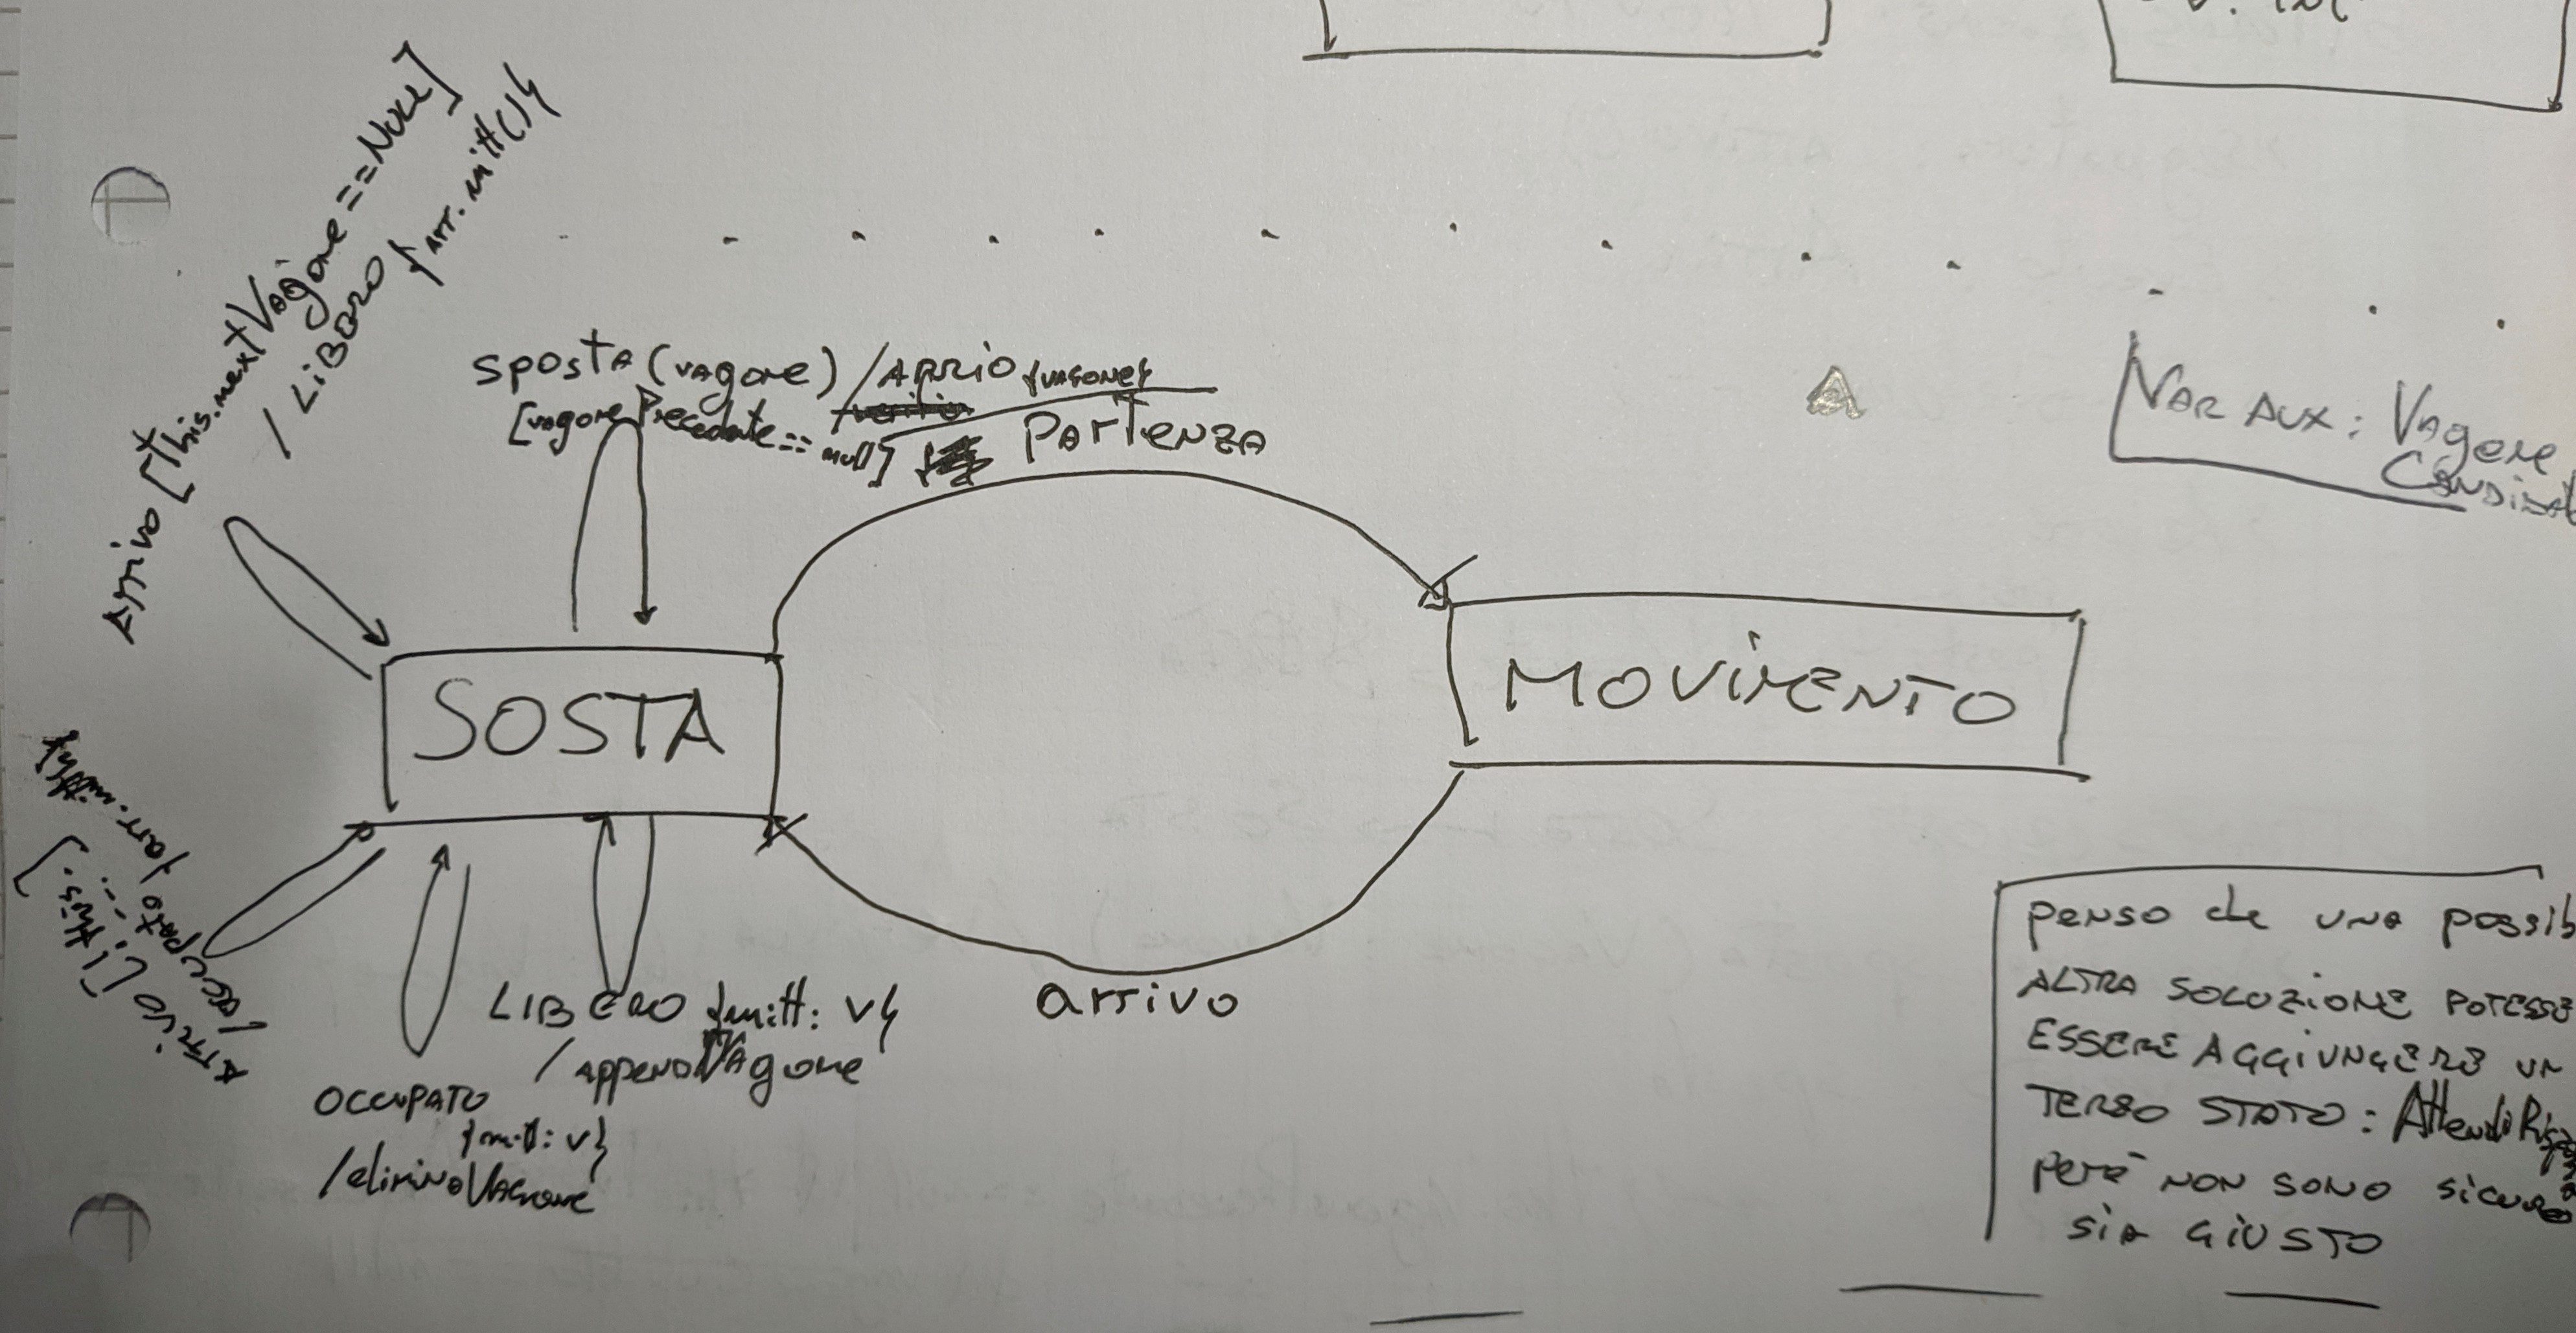 Arrivo [this.nextVagone == NULL]
/ LIBERO {arr.mitt()}
sposta (vagone) / Arrio {vagone}
[vagonePrecedente == null]
Partenza
A
VAR AUX: Vagone
SOSTA
MOVIMENTO
Arrivo [! this. ...]
/occupato {arr.mitt}
LIBERO {mitt: v}
/ appendVagone
OCCUPATO
{mitt: v}
/eliminaVagone
arrivo
penso che una possib
ALTRA SOLUZIONE POTESSE
ESSERE AGGIUNGERE UN
TERZO STATO: Attendi
però NON SONO sicuro
sia GIUSTO